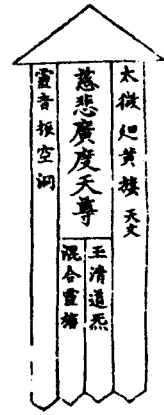 太微廻黃旗 天文
慈悲廣度天尊
玉清道炁
混合靈旛
靈音振空洞